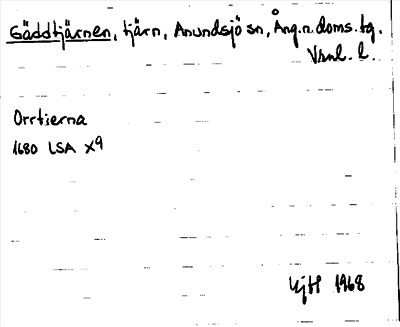 Gäddtjärnen, tjärn, Anundsjö sn, Ång.n.doms.tg.
Vsnl. l.
Orrtierna
1680 LSA X9
1968